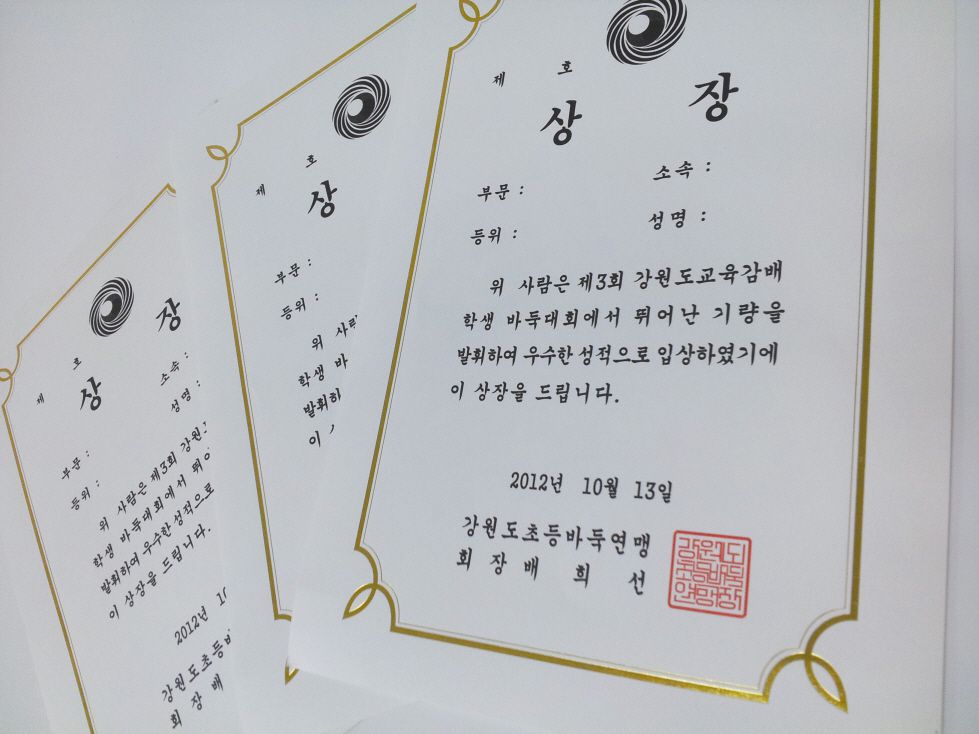 제 호
상 장
부문 : 소속 :
등위 : 성명 :
위 사람은 제3회 강원도교육감배
학생 바둑대회에서 뛰어난 기량을
발휘하여 우수한 성적으로 입상하였기에
이 상장을 드립니다.
2012년 10월 13일
강원도초등바둑연맹
회 장 배 희 선
강원도
초등바둑
연맹장
제 호
상
부문 :
등위 :
위 사람
학생 바
발휘하
이
제 호
상 장
부문 : 소속 :
등위 : 성명 :
위 사람은 제3회 강원
학생 바둑대회에서 뛰어
발휘하여 우수한 성적으로
이 상장을 드립니다.
2012년 10
강원도초등바
회 장 배